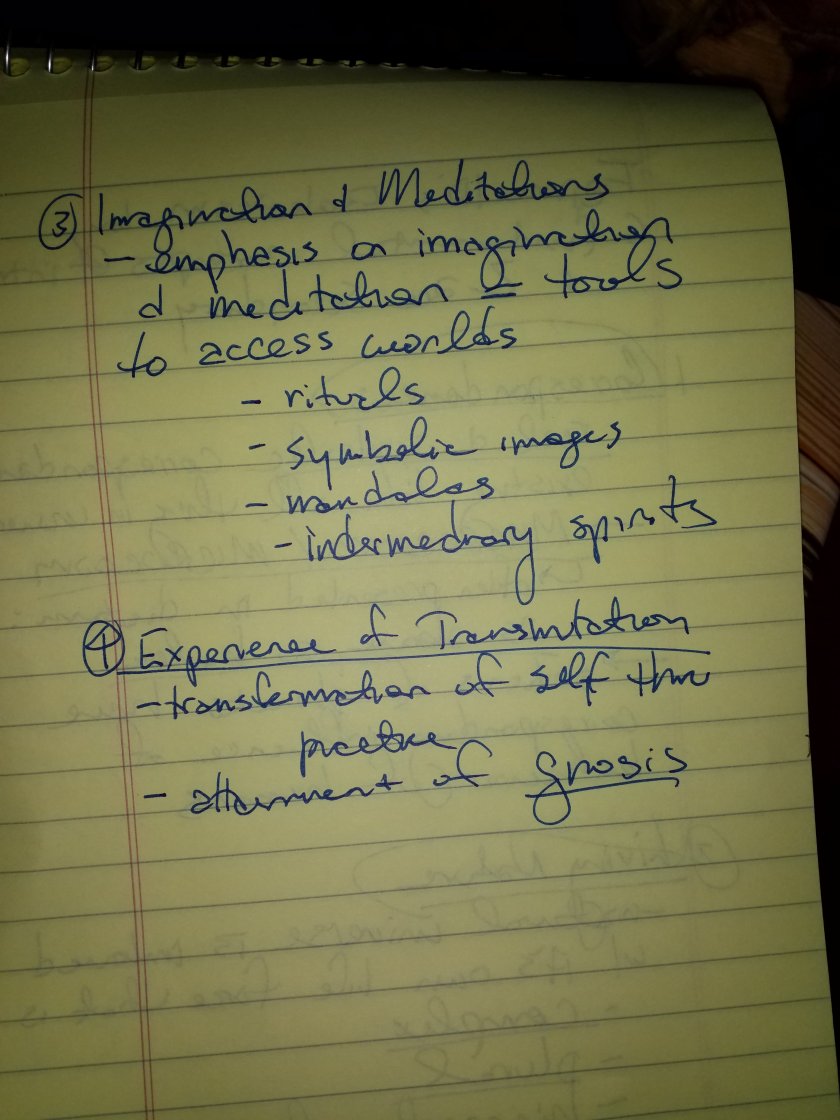 ③ Imagination & Meditations
- emphasis on imagination
& meditation as tools
to access worlds
- rituals
- symbolic images
- mandalas
- intermediary spirits
④ Experience of Transmutation
- transformation of self thru
practice
- attainment of gnosis